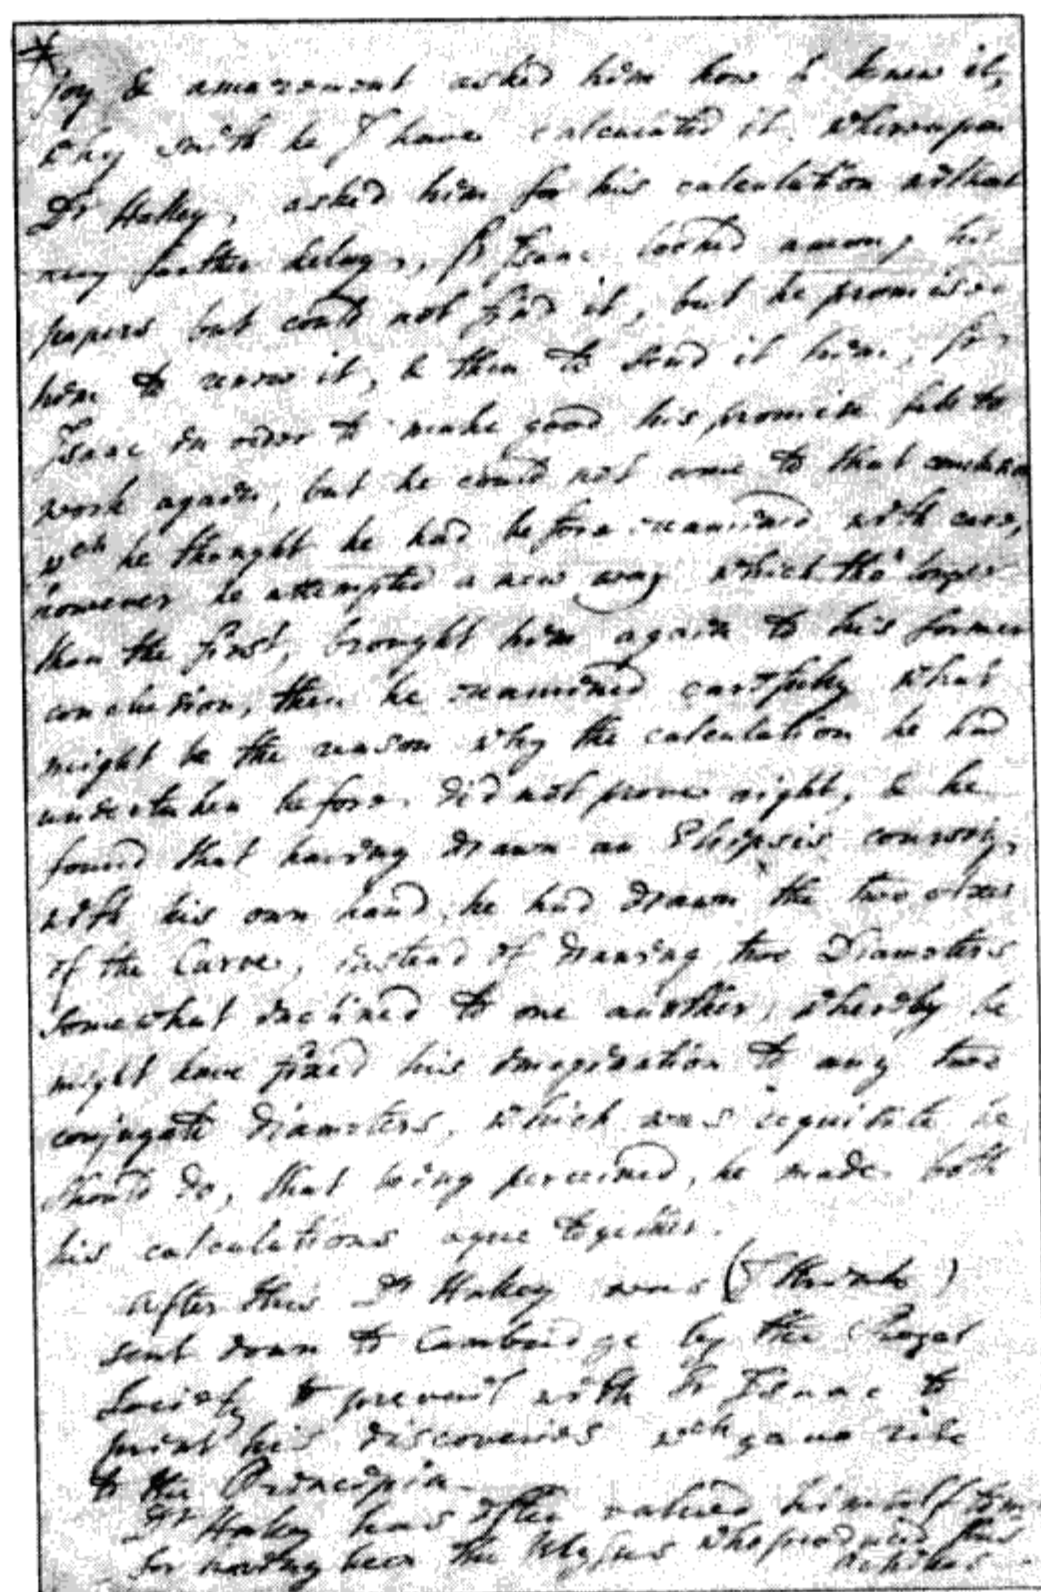 *
joy & amazement asked him how he knew it,
why saith he I have calculated it, whereupon
Dr Halley, asked him for his calculation without
any farther delay, Sr Isaac looked among his
papers but could not find it, but he promised
him to renew it, & then to send it him, Sr
Isaac in order to make good his promise fell to
work again, but he could not come to that conclusion
wch he thought he had before examined with care,
however he attempted a new way which tho' longer
than the first, brought him again to his former
conclusion, then he examined carefully what
might be the reason why the calculation he had
undertaken before did not prove right, & he
found that having drawn an Elipsis coursely,
with his own hand, he had drawn the two Axes
of the Curve, instead of drawing two Diameters
somewhat inclined to one another, whereby he
might have fixed his imagination to any two
conjugate diameters, which was requisite he
should do, that being perceived, he made both
his calculations agree together.
After this Dr Halley was (I think)
sent down to Cambridge by the Royal
Society to prevail with Sr Isaac to
print his discoveries wch gave rise
to the Principia.
Dr Halley has often valued himself to me
for having been the Ulysses who produced this
Achilles.